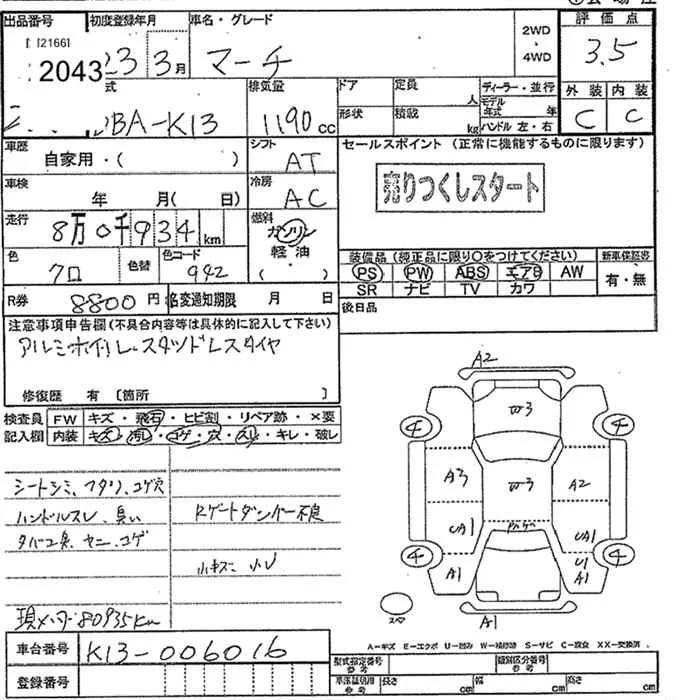 出品番号 初度登録年月 車名・グレード 評価点
21661
2043 23 3月 マーチ 2WD ・ 4WD 3.5
外装 内装
C C
式 排気量 ドア 定員 人 ディーラー・並行
BA-K13 1190cc 形状 積載 kg モデル年式 年 ハンドル 左・右
車歴 自家用・( ) シフト AT セールスポイント (正常に機能するものに限ります)
車検 年 月( 日) 冷房 AC 売りつくしスタート
走行 8万0千934km 燃料 ガソリン 軽油 ( )
色 クロ 色替 色コード 942 装備品 (純正品に限り○をつけてください) 新車保証書
PS PW ABS エアB AW 有・無
SR ナビ TV カワ
R券 8800円 名変通知期限 月 日 後日品
注意事項申告欄 (不具合内容等は具体的に記入して下さい)
アルミホイル、スタッドレスタイヤ
修復歴 有 〔箇所 〕
検査員 FW キズ・飛石・ヒビ割・リペア跡・×要
記入欄 内装 キズ・汚レ・コゲ・穴・スレ・キレ・破レ
シートシミ、フタリ、コゲ穴
ハンドルスレ、臭い Rゲートダンパー不良
タバコ臭、ヤニ、コゲ
小キズ、小U
現メーター80935km
A2
チ W3 チ
A3 W3 A2
UA1 UA1
チ チ
A1 U1
A1
スペア A1
A-キズ E-エクボ U-凹み W-補修跡 S-サビ C-腐食 XX-交換済
車台番号 K13-006016
登録番号
型式指定番号 参考 類別区分番号 参考
車庫証明用 参考 長さ cm 幅 cm 高さ cm